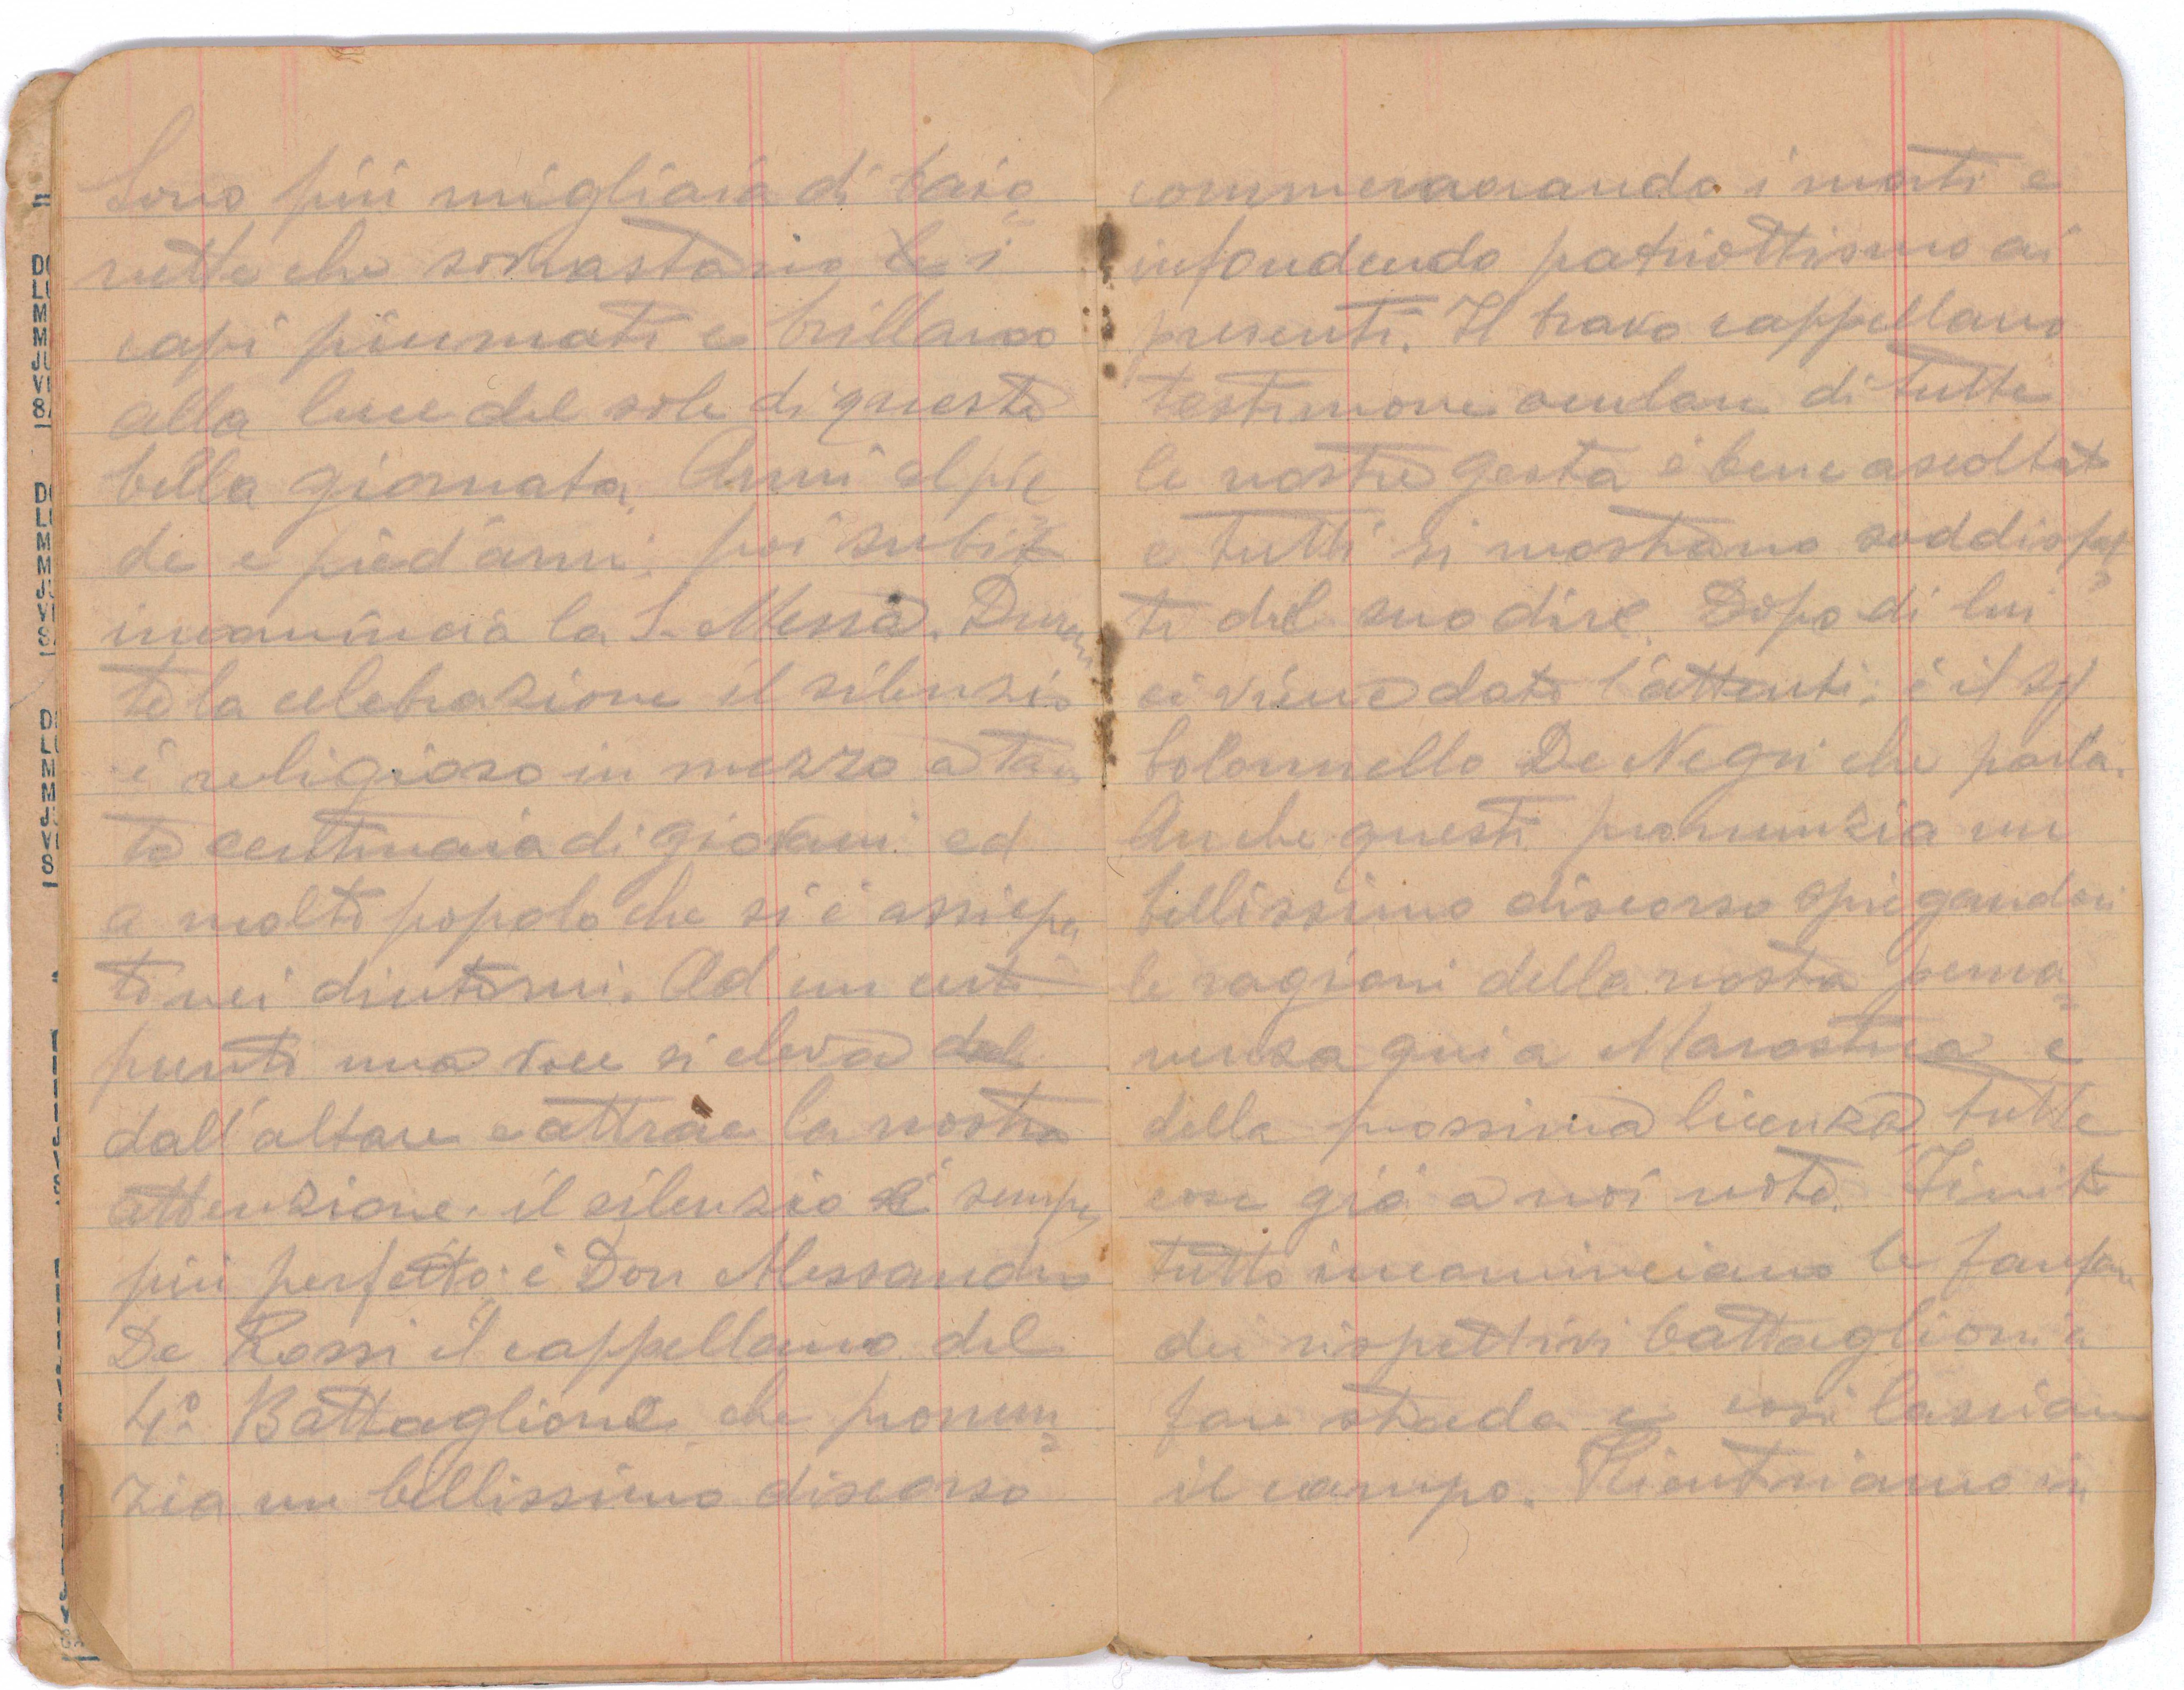 Sono più migliaia di baio=
nette che sovrastano le i
capi piumati e brillano
alla luce del sole di questa
bella giornata. Armi al pie=
de e pied'arm; poi subito
incomincia la S. Messa. Duran=
te la celebrazione il silenzio
è religioso in mezzo a tan=
te centinaia di giovani ed
a molto popolo che si è assiepa=
to nei dintorni. Ad un certo
punto una voce si eleva dal
dall'altare e attrae la nostra
attenzione. il silenzio è sempre
più perfetto: è Don Alessandro
De Rossi il cappellano del
4° Battaglione che pronun=
zia un bellissimo discorso
commemorando i morti e
infondendo patriottismo ai
presenti. Il bravo cappellano
testimone oculare di tutte
le nostre gesta è bene ascoltato
e tutti si mostrano soddisfat=
ti del suo dire. Dopo di lui
ci viene dato l'attenti: è il Sig
Colonnello De Negri che parla.
Anche questi pronunzia un
bellissimo discorso spiegandoci
le ragioni della nostra perma=
nenza qui a Marostica e
della prossima licenza tutte
cose già a noi note. Finito
tutto incominciano le fanfare
dei rispettivi battaglioni a
fare strada e così lasciamo
il campo. Rientriamo in